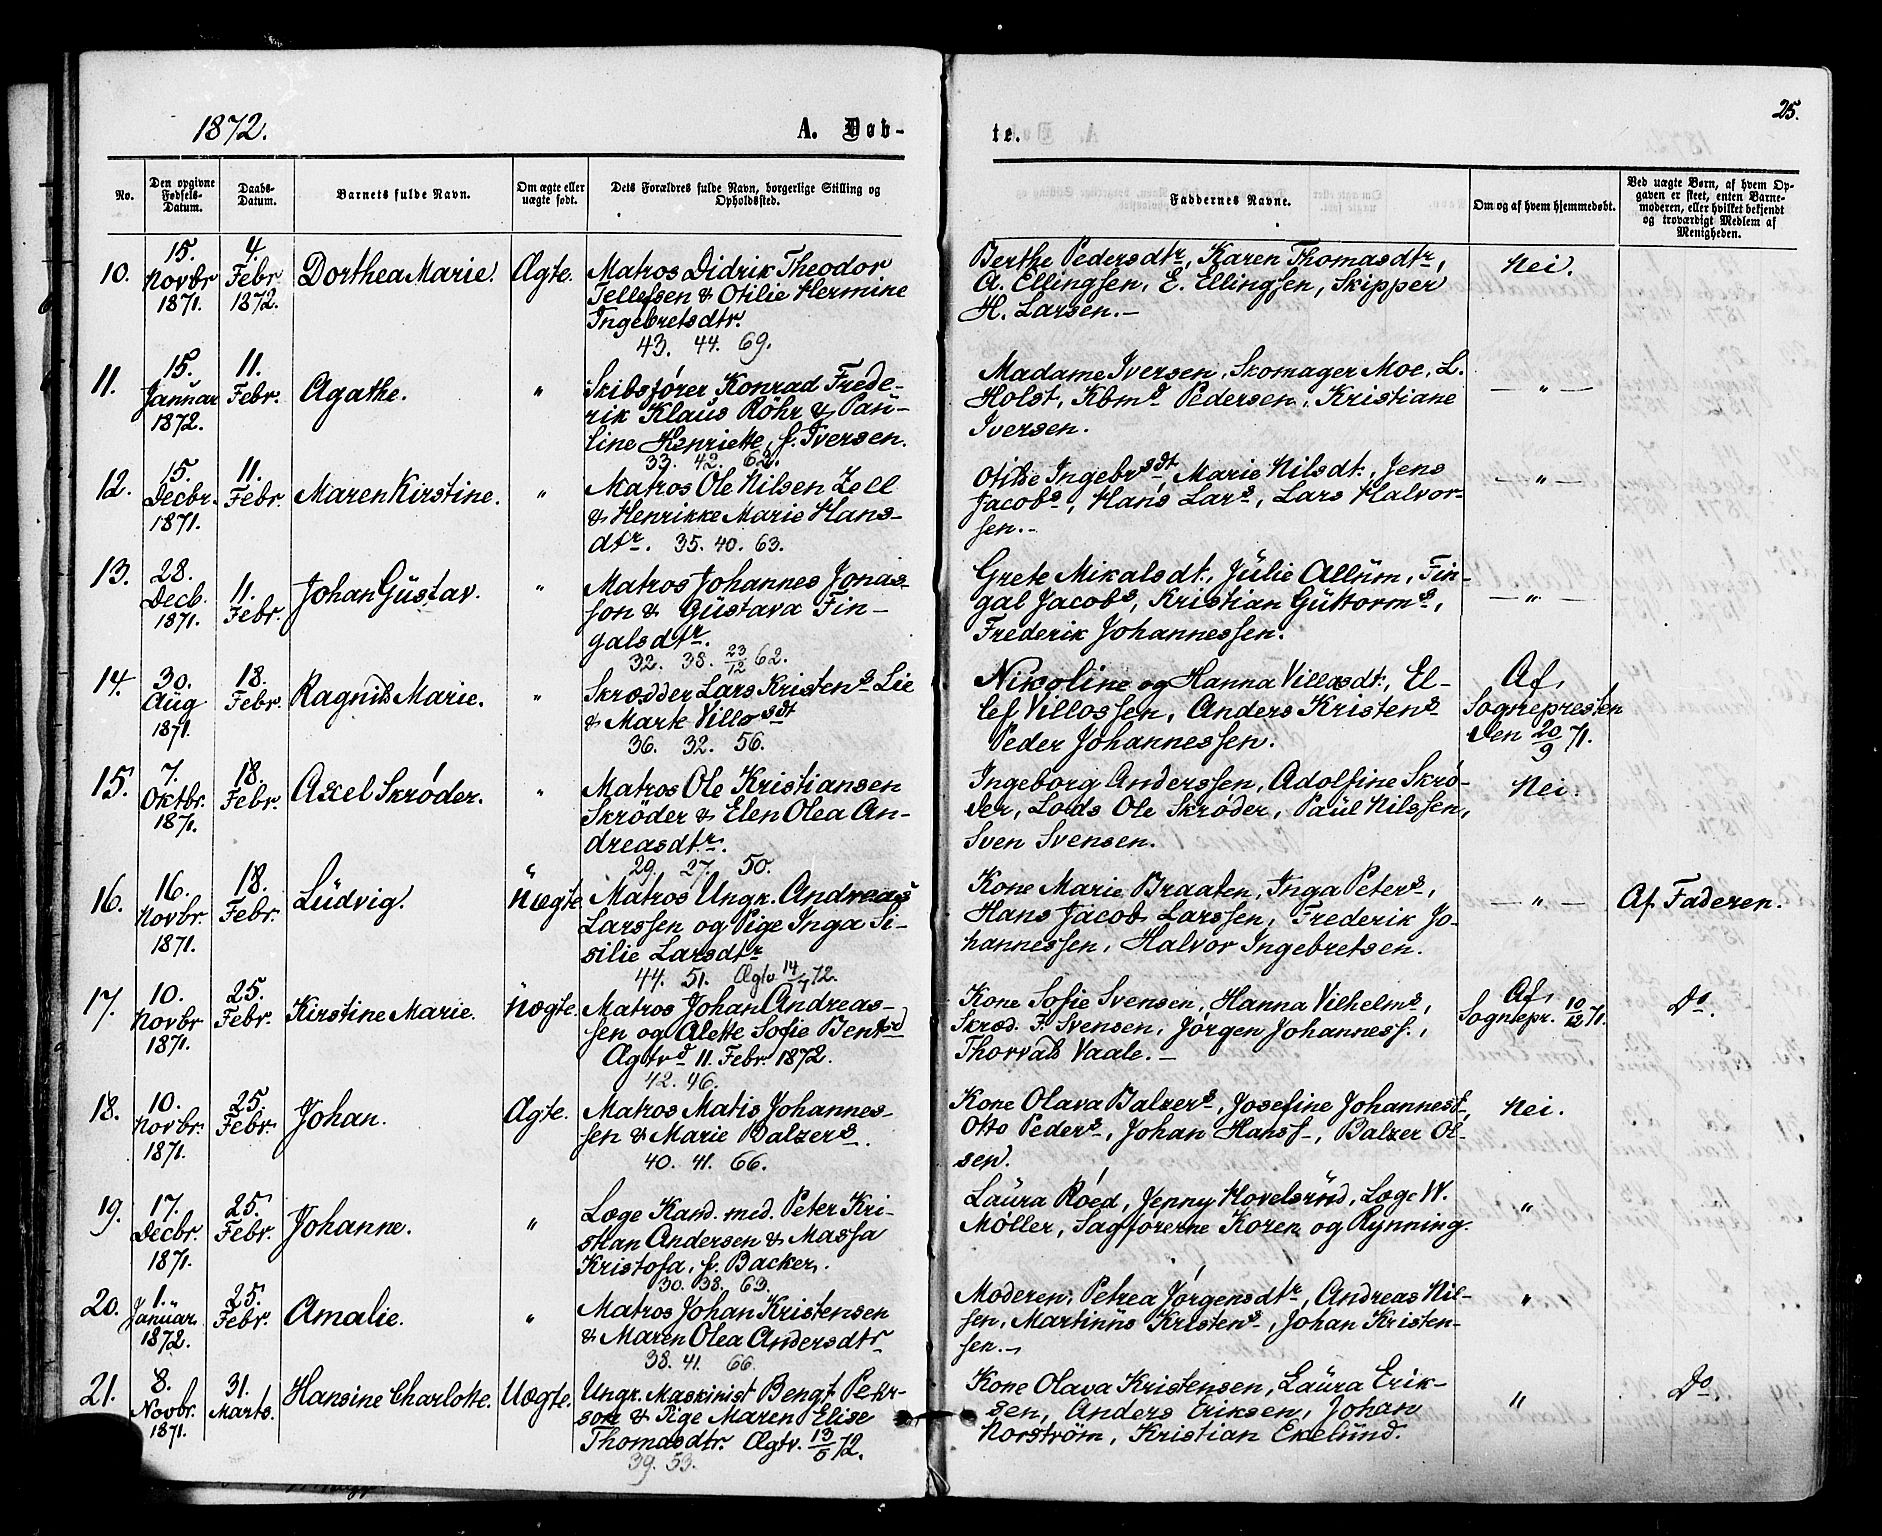 1872.
A. Døb-
te.
25.
No.
Den opgivne Fødsels-Datum.
Daabs-Datum.
Barnets fulde Navn.
Om ægte eller uægte født.
Dets Forældres fulde Navn, borgerlige Stilling og Opholdssted.
Faddernes Navne.
Om og af hvem hjemmedøbt.
Ved uægte Børn, af hvem Opgaven er skeet, enten Barnemoderen, eller hvilket bekjendt og troværdigt Medlem af Menigheden.
10.
15. Novbr 1871.
4. Febr 1872.
Dorthea Marie.
Ægte.
Matros Didrik Theodor
Tellefsen & Otilie Hermine
Ingebretsdtr.
43. 44. 69.
Berthe Pedersdtr, Karen Thomasdtr,
A. Ellingsen, E. Ellingsen, Skipper
H. Larsen.-
Nei.
11.
15. Januar 1872.
11. Febr.
Agathe.
"
Skibsfører Konrad Frede-
rik Klaus Röhr & Pau-
line Henriette, f. Iversen.
33. 42. 62.
Madame Iversen, Skomager Moe, L.
Holst, Kbmd Pedersen, Kristiane
Iversen.
— " —
12.
15. Decbr. 1871.
11. Febr.
Maren Kirstine.
"
Matros Ole Nilsen Zell
& Henrikke Marie Hans-
dtr. 35. 40. 63.
Otilde Ingebrsdt, Marie Nilsdt., Jens
Jacobs, Hans Lars, Lars Halvor-
sen.-
— " —
13.
28. Decb. 1871.
11. Febr.
Johan Gustav.
"
Matros Johannes Jonas-
son & Gustava Fin-
galsdtr.
32. 38. 23/12 62.
Grete Mikalsdt., Julie Allum, Fin-
gal Jacobs, Kristian Guttorms,
Frederik Johannessen.
— " —
14.
30. Aug 1871.
18. Febr.
Ragnild Marie.
"
Skrædder Lars Kristens Lie
& Marte Villosdt
36. 32. 56.
Nikoline og Hanna Villosdt., El-
lef Villossen, Anders Kristens
Peder Johannessen.
Af
Sognepresten
den 20/9 71.
15.
7. Oktbr. 1871.
18. Febr.
Axel Skrøder.
"
Matros Ole Kristiansen
Skrøder & Elen Olea An-
dreasdtr.
29. 27. 50.
Ingeborg Anderssen, Adolfine Skrø-
der, Lods Ole Skrøder, Paul Nilssen,
Sven Svensen.
Nei.
16.
16. Novbr. 1871.
18. Febr.
Ludvig.
Uægte
Matros Ungk. Andreas
Larssen og Pige Inga Si-
silie Larsdtr
44. 51. Ægtv 14/7 72.
Kone Marie Braaten, Inga Peters,
Hans Jacob Larssen, Frederik Jo-
hannessen, Halvor Ingebretsen.
— " —
Af Faderen.
17.
10. Novbr 1871.
25. Febr.
Kirstine Marie.
Uægte.
Matros Johan Andreas-
sen og Alette Sofie Bentsd
Ægtvd 11. Febr. 1872.
42. 46.
Kone Sofie Svensen, Hanna Vilhelms,
Skræd. F. Svensen, Jørgen Johanness.,
Thorvald Vaale.-
Af
Sognepr. 10/12 71.
Do.
18.
10. Novbr. 1871.
25. Febr.
Johan.
Ægte.
Matros Matis Johannes-
sen & Marie Balzers.
40. 41. 66.
Kone Olava Balzers, Josefine Johannesf,
Otto Peders, Johan Hanss-, Balzer Ol-
sen.
Nei.
19.
17. Decbr. 1871.
25. Febr.
Johanne.
"
Læge Kand. med. Peter Kri-
stian Andersen & Massa
Kristofa, f. Backer.
30. 38. 63.
Laura Róed, Jenny Hovelsrud, Læge W.
Møller, Sagførerne Koren og Rynning.
"
20.
1. Januar. 1872.
25. Febr.
Amalie.
"
Matros Johan Kristensen
& Maren Olea Andersdtr
38. 41. 66.
Moderen, Petrea Jørgensdtr, Andreas Nil-
sen, Martinus Kristens, Johan Kristen-
sen.-
"
21.
8. Novbr. 1871.
31. Marts.
Hansine Charlotte.
Uægte.
Ungk. Maskinist Bengt Peter-
son & Pige Maren Elise
Thomasdtr. Ægtv. 13/5 72.
39. 53.
Kone Olava Kristensen, Laura Erik-
sen, Anders Eriksen, Johan
Norström, Kristian Ekelund.
"
Do.